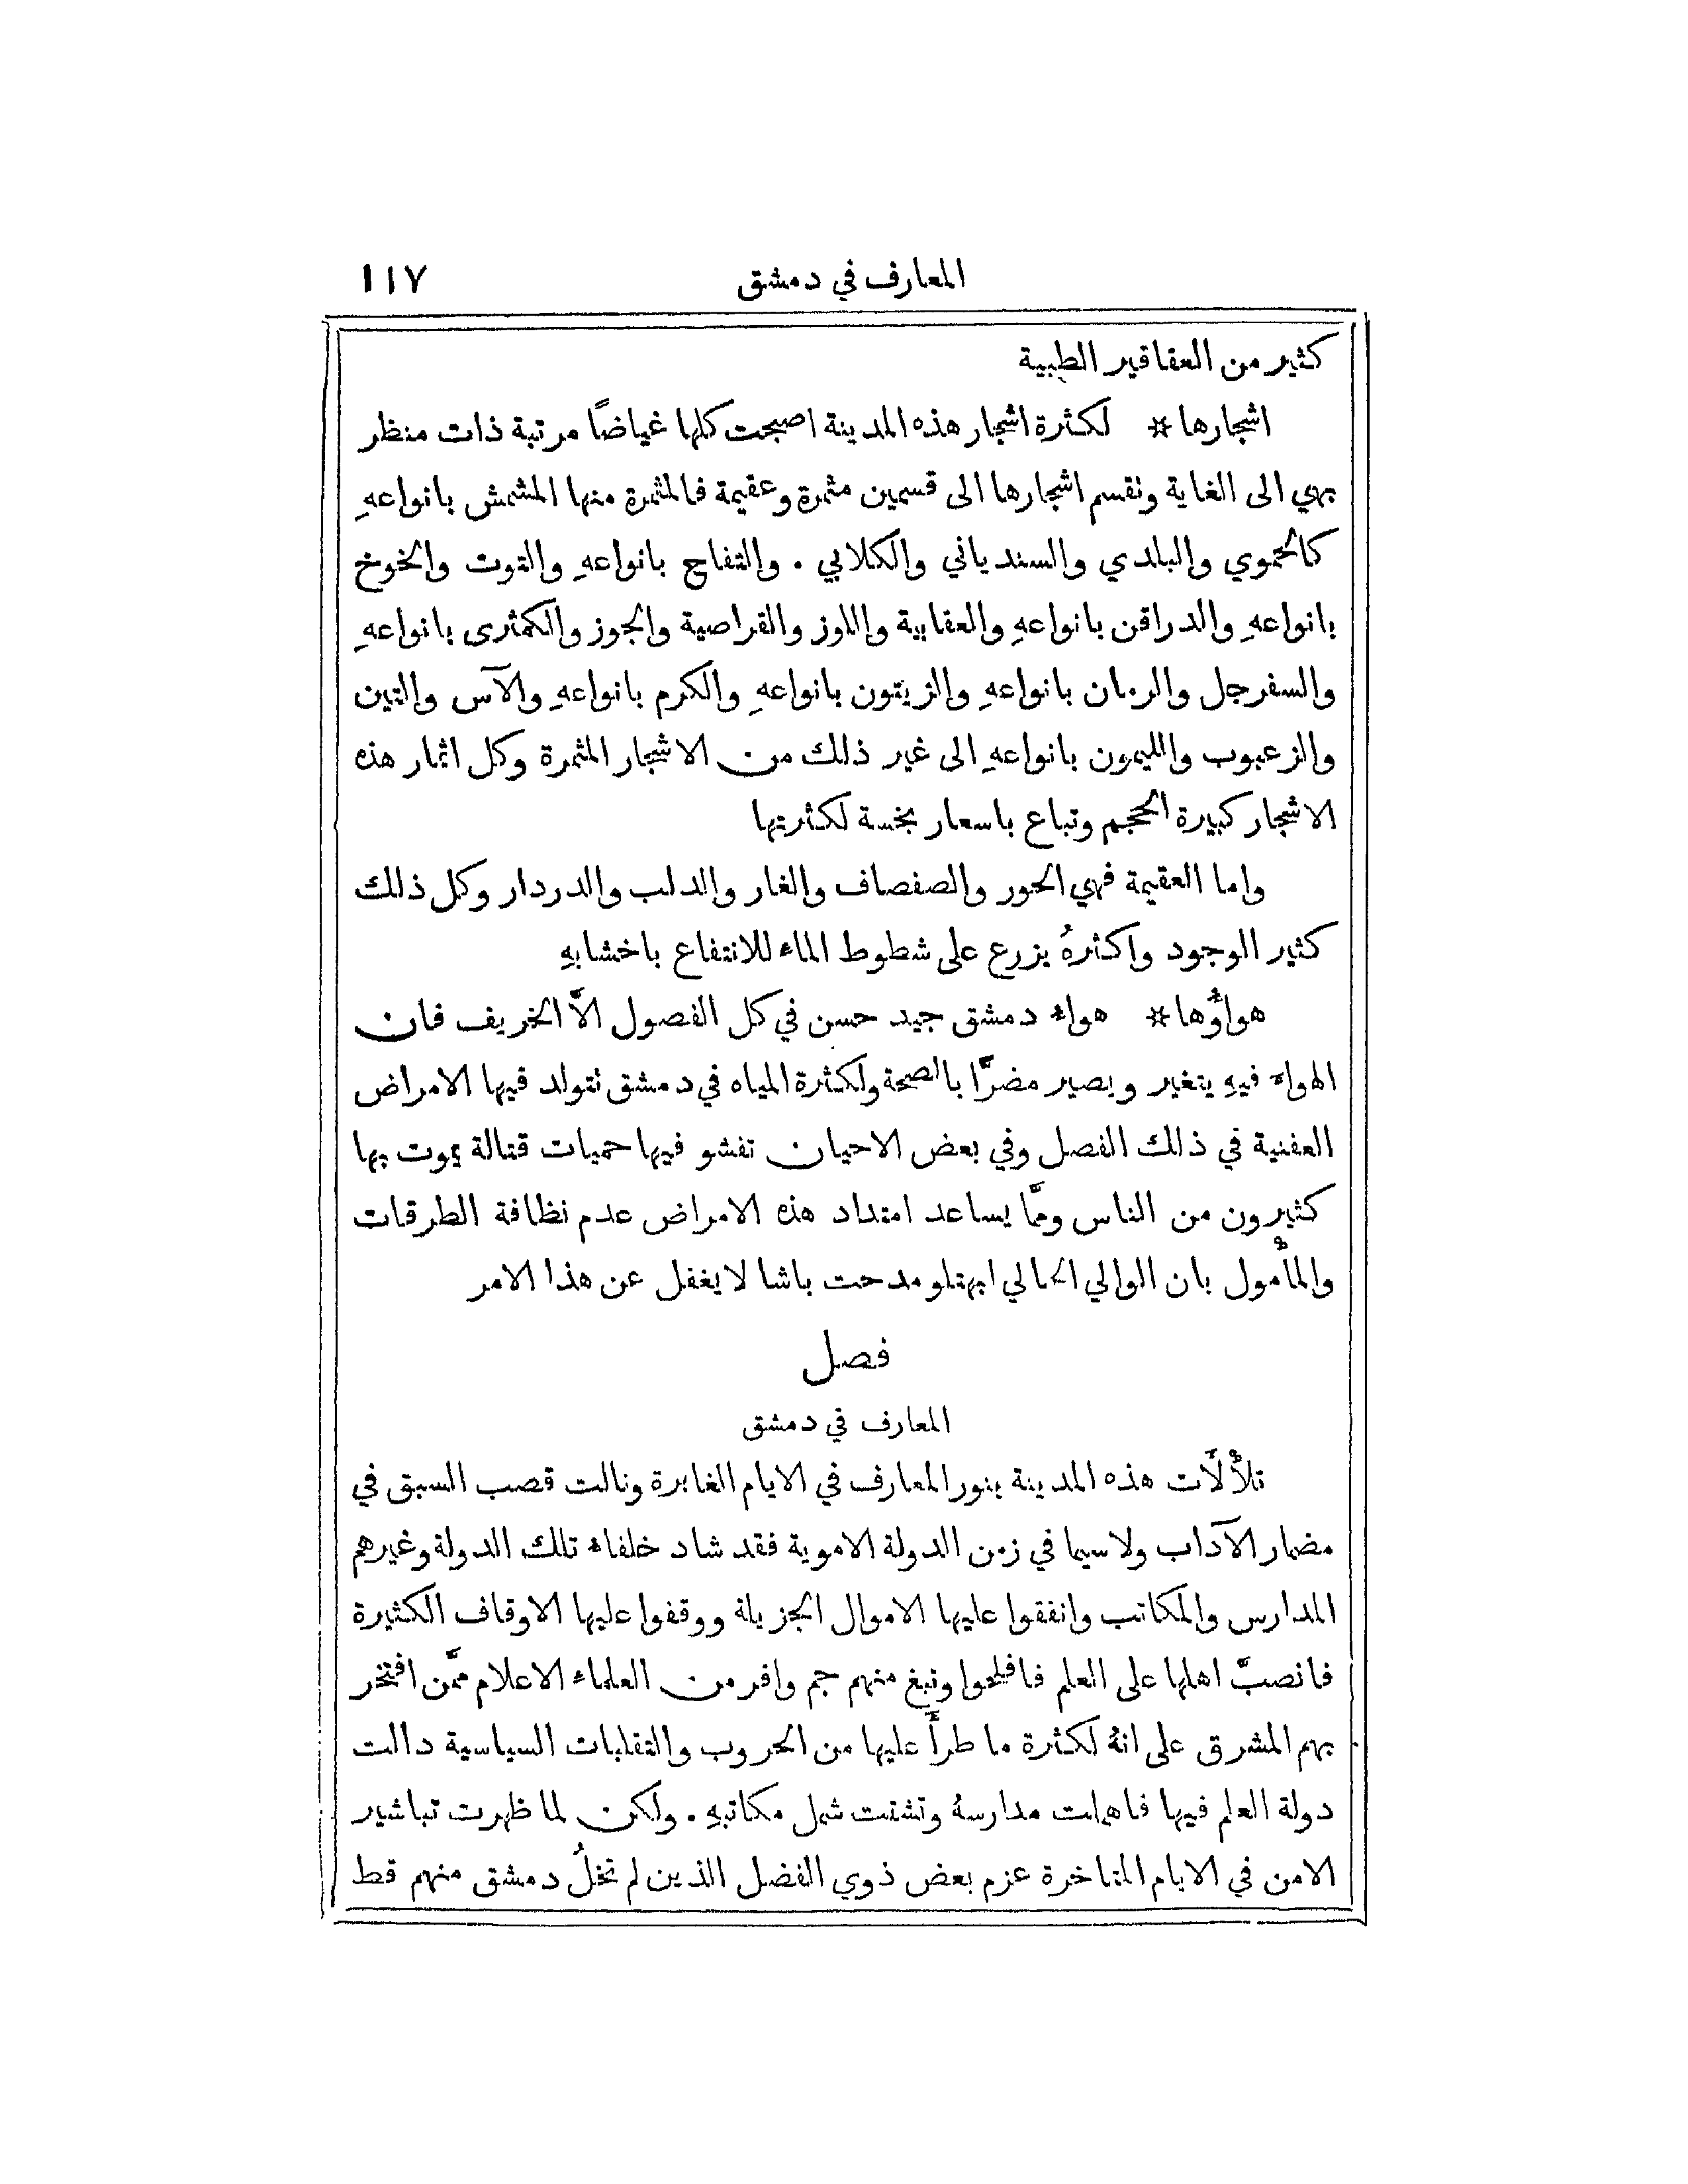 المعارف في دمشق ١١٧
كثير من العقاقير الطبية
اشجارها * لكثرة اشجار هذه المدينة اصبحت كلها غياضًا مرتبة ذات منظر
بهي الى الغاية وتقسم اشجارها الى قسمين مثمرة وعقيمة فالمثمرة منها المشمش بانواعهِ
كالحموي والبلدي والسندياني والكلابي . والتفاح بانواعهِ والتوت والخوخ
بانواعهِ والدراقن بانواعهِ والعقابية واللوز والقراصية والجوز والكمثرى بانواعهِ
والسفرجل والرمان بانواعهِ والزيتون بانواعهِ والكرم بانواعهِ والآس والتين
والزعبوب والليمون بانواعهِ الى غير ذلك من الاشجار المثمرة وكل اثمار هذه
الاشجار كبيرة الحجم وتباع باسعار بخسة لكثرتها
واما العقيمة فهي الحور والصفصاف والغار والدلب والدردار وكل ذلك
كثير الوجود واكثرهُ يزرع على شطوط الماء للانتفاع باخشابهِ
هواؤُها * هواء دمشق جيد حسن في كل الفصول الاَّ الخريف فان
الهواء فيهِ يتغير ويصير مضرًّا بالصحة ولكثرة المياه في دمشق تتولد فيها الامراض
العفنية في ذلك الفصل وفي بعض الاحيان تفشو فيها حميات قتالة يموت بها
كثيرون من الناس وممَّا يساعد امتداد هذه الامراض عدم نظافة الطرقات
والمأْمول بان الوالي الحالي ابهتلو مدحت باشا لا يغفل عن هذا الامر
فصل
المعارف في دمشق
تلأْلَأَت هذه المدينة بنور المعارف في الايام الغابرة ونالت قصب السبق في
مضمار الآداب ولا سيما في زمن الدولة الاموية فقد شاد خلفاء تلك الدولة وغيرهم
المدارس والمكاتب وانفقوا عليها الاموال الجزيلة ووقفوا عليها الاوقاف الكثيرة
فانصبَّ اهلها على العلم فافلحوا ونبغ منهم جم وافر من العلماء الاعلام ممَّن افتخر
بهم المشرق على انهُ لكثرة ما طرأَ عليها من الحروب والتقلبات السياسية دالت
دولة العلم فيها فاهملت مدارسهُ وتشتت شمل مكاتبهِ . ولكن لما ظهرت تباشير
الامن في الايام المتاخرة عزم بعض ذوي الفضل الذين لم تخلُ دمشق منهم قط